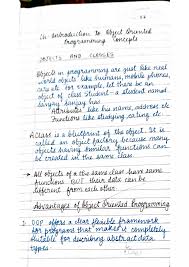 An Introduction to Object Oriented
Programming Concepts
OBJECTS AND CLASSES
Objects in programming are just like real
world objects like humans, mobile phones,
cars etc. for example, let there be an
object of class Student - a student named
Sanjay. Sanjay has
Attributes like his name, address etc
Functions like studying, eating etc.
A Class is a blueprint of the object. It is
called an object factory because many
objects having similar functions can
be created in the same class.
→ All objects of a the same class have same
functions BUT their data can be
different from each other.
Advantages of Object Oriented Programming
OOP offers a clear flexible framework
for programs that makes it completely
suitable for describing abstract data
types.